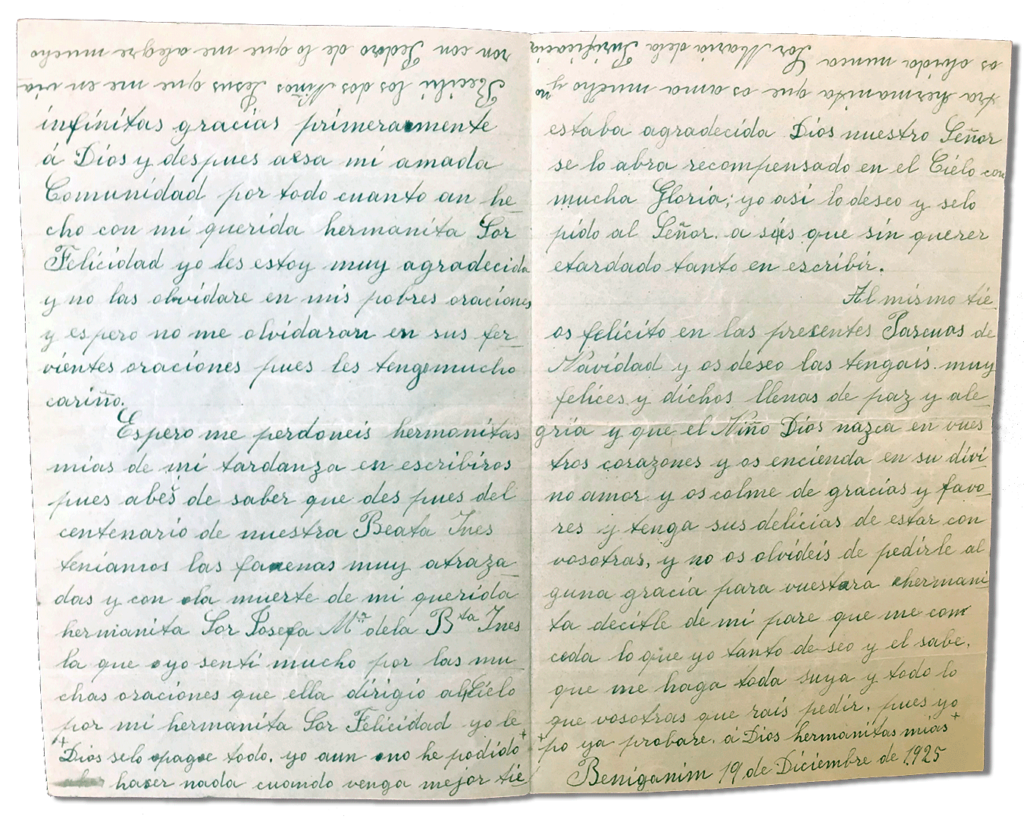 infinitas gracias primeramente
á Dios y despues aesa mi amada
Comunidad por todo cuanto an he_
cho con mi querida hermanita Sor
Felicidad yo les estoy muy agradecida
y no las olvidare en mis pobres oraciones
y espero no me olvidaran en sus fer_
vientes oraciones pues les tengo mucho
cariño.
Espero me perdoneis hermanitas
mias de mi tardanza en escribiros
pues abeš de saber que des pues del
centenario de nuestra Beata Ines
teniamos las faenas muy atraza_
das y con la muerte de mi querida
hermanita Sor Josefa Mª dela Bta Ines
la que yo senti mucho por las mu_
chas oraciones que ella dirigio al Cielo
por mi hermanita Sor Felicidad yo le +
+ Dios selo pague todo. yo aun no he podido +
hacer nada cuando venga mejor tie_
estaba agradecida Dios nuestro Señor
se lo abra recompensado en el Cielo con
mucha Gloria; yo asi lo deseo y selo
pido al Señor. a sies que sin querer
etardado tanto en escribir.
Al mismo tie_
os felicito en las presentes Pascuas de
Navidad y os deseo las tengais muy
felices y dichos llenas de paz y ale_
gria y que el Niño Dios nazca en vues_
tros corazones y os encienda en su divi_
no amor y os colme de gracias y favo_
res y tenga sus delicias de estar con
vosotras, y no os olvideis de pedirle al
guna gracia para vuestara hermani
ta decitle de mi pare que me con
ceda lo que yo tanto de seo y el sabe.
que me haga toda suya y todo lo
que vosotras que rais pedir. pues yo +
+ po ya probare. á Dios hermanitas mias +
Beniganim 19 de Diciembre de 1925
tra hermanita que os ama mucho y no
os olvida nunca Sor Maria dela Purificacion
Recibi los dos Niños Jesus que me en via_
ron con de lo que me alegre mucho